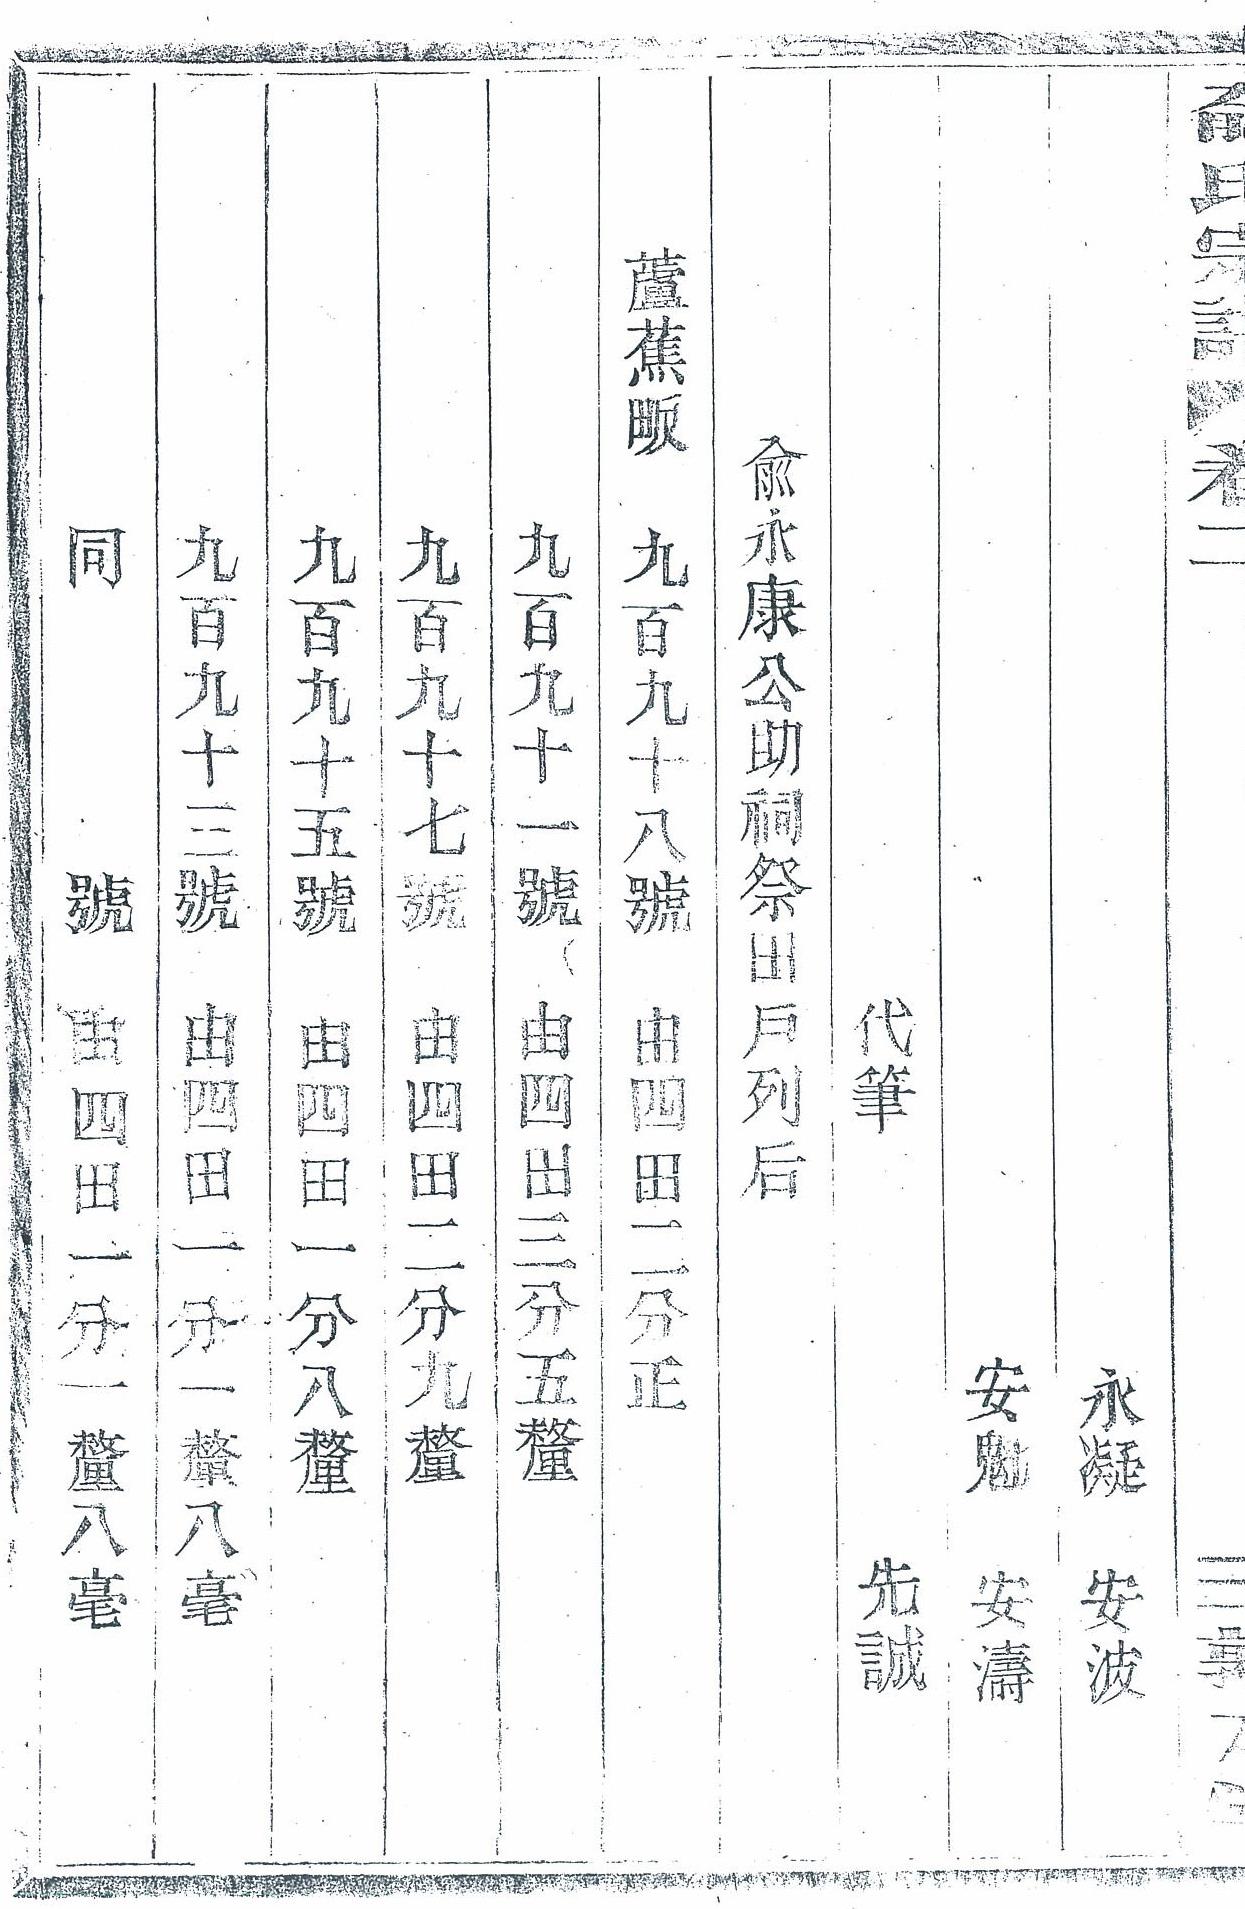 俞氏宗譜 卷二
永凝 安波
安魁 安濤
代筆 先誠
俞永康公助祠祭田戶列后
蘆蕉畈 九百九十八號 由四田二分正
九百九十一號 由四田三分五釐
九百九十七號 由四田二分九釐
九百九十五號 由四田一分八釐
九百九十三號 由四田一分一釐八毫
同號 由四田一分一釐八毫